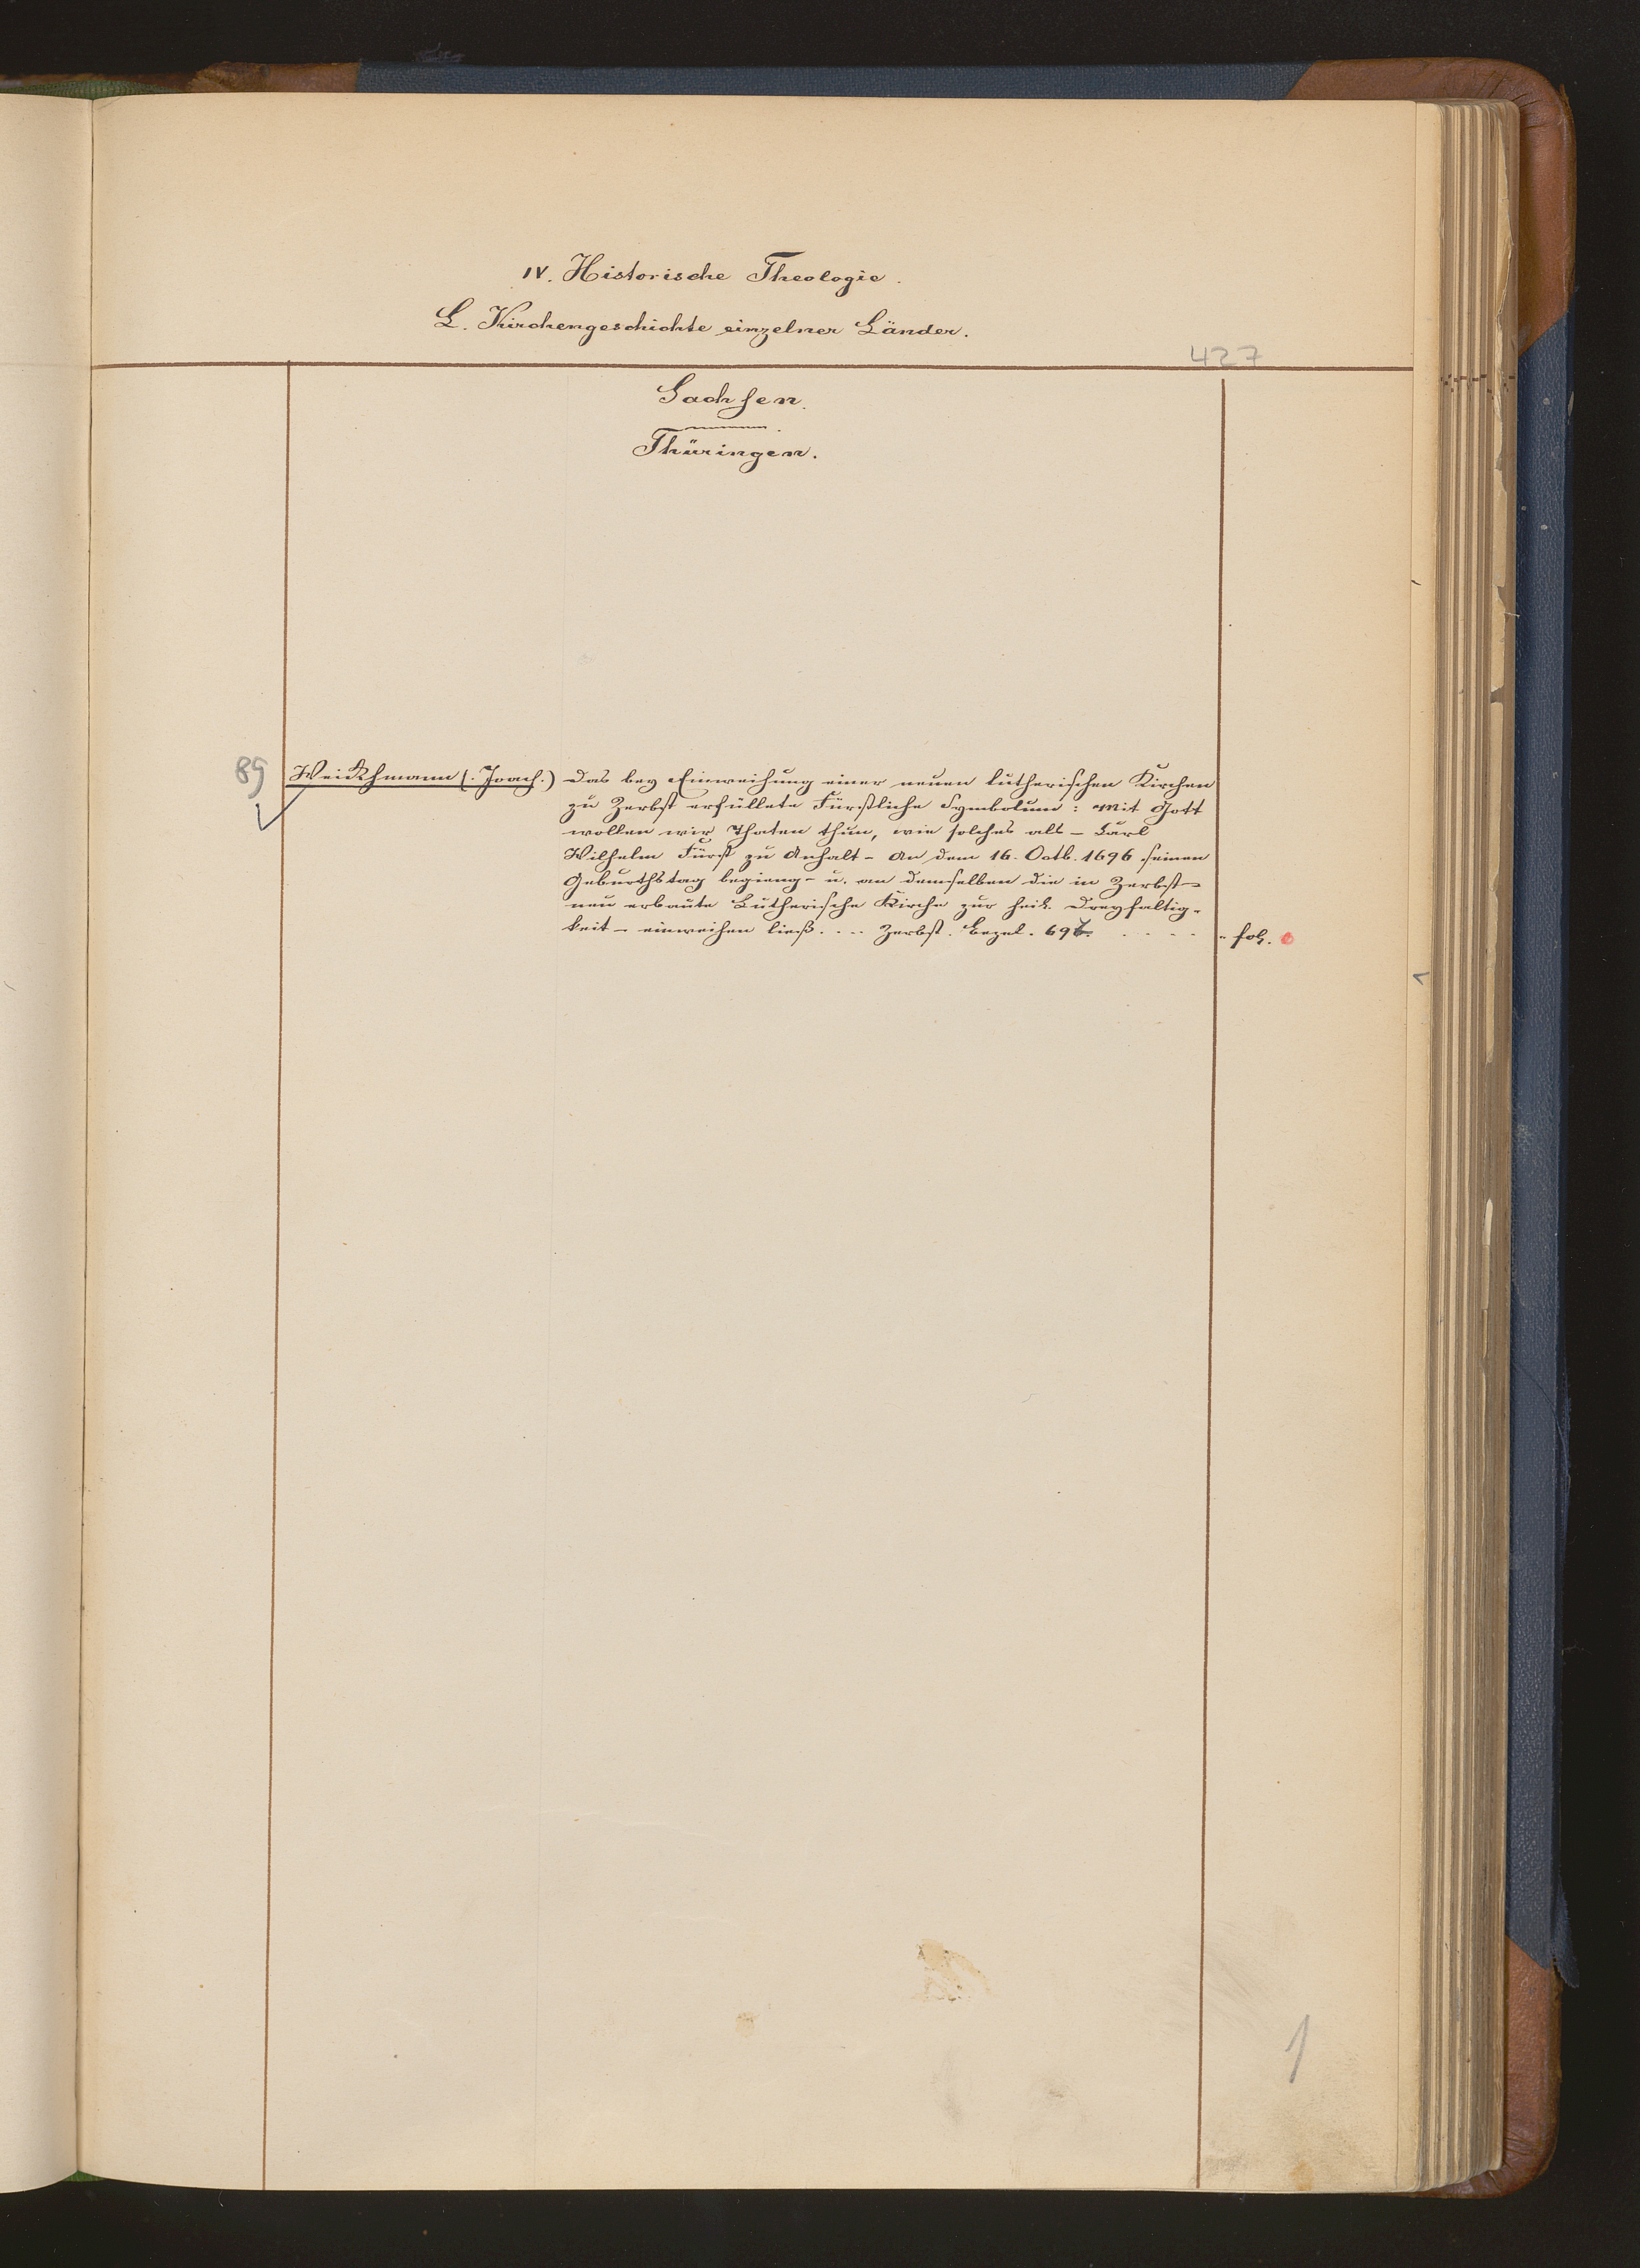 IV. Historische Theologie.
L. Kirchengeschichte einzelner Länder.
427
Sachsen.
Thüringen.
89 Weickhmann (: Joach:) Das bey Einweihung einer neuen lutherischen Kirchen
zu Zerbst erfüllete Fürstliche Symbolum: Mit Gott
wollen wir Thaten thun, wie solches als - Carl
Wilhelm Fürst zu Anhalt - An dem 16. Octb. 1696 seinen
Geburthstag begieng - u. an demselben die in Zerbst -
neu erbaute Lutherische Kirche zur heil. Dreyfaltig-
keit - einweihen ließ. ... Zerbst. Bezel. 697. . . . . . fol.
1